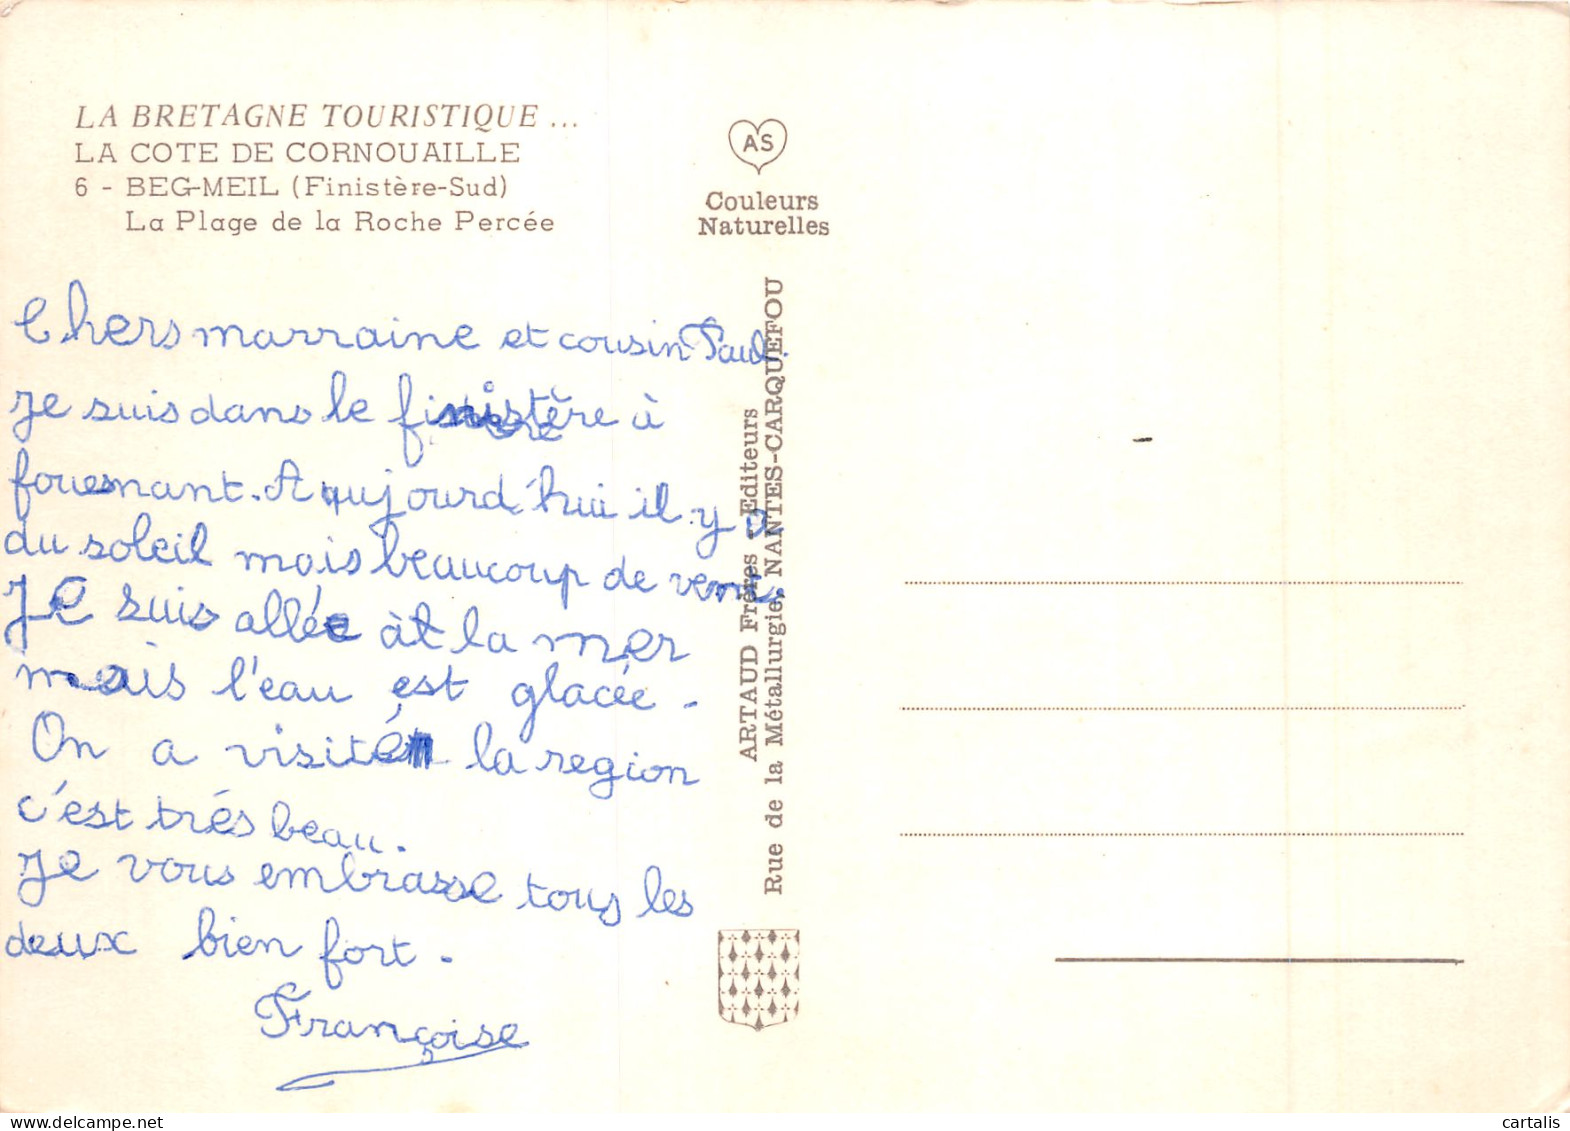 LA BRETAGNE TOURISTIQUE ...
LA COTE DE CORNOUAILLE
6 - BEG-MEIL (Finistère-Sud)
La Plage de la Roche Percée
AS
Couleurs
Naturelles
Chers marraine et cousin Paul.
Je suis dans le finistère à
fouesnant. Aujourd'hui il y a
du soleil mais beaucoup de vent.
Je suis allée à la mer
mais l'eau est glacée.
On a visité la region
c'est trés beau.
Je vous embrasse tous les
deux bien fort.
Françoise
ARTAUD Frères - Editeurs
Rue de la Métallurgie, NANTES-CARQUEFOU
cartalis